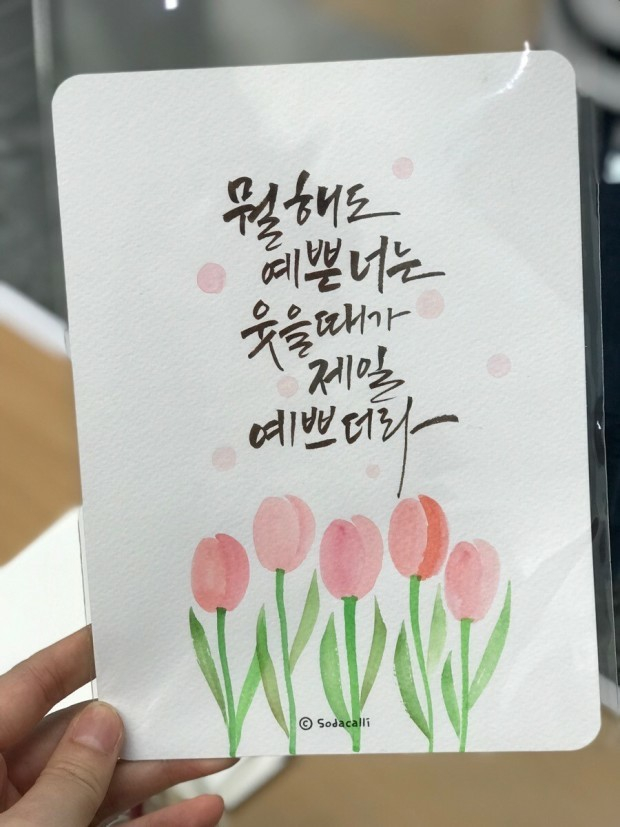 뭘해도
예쁜너는
웃을때가
제일
예쁘더라
© Sodacalli